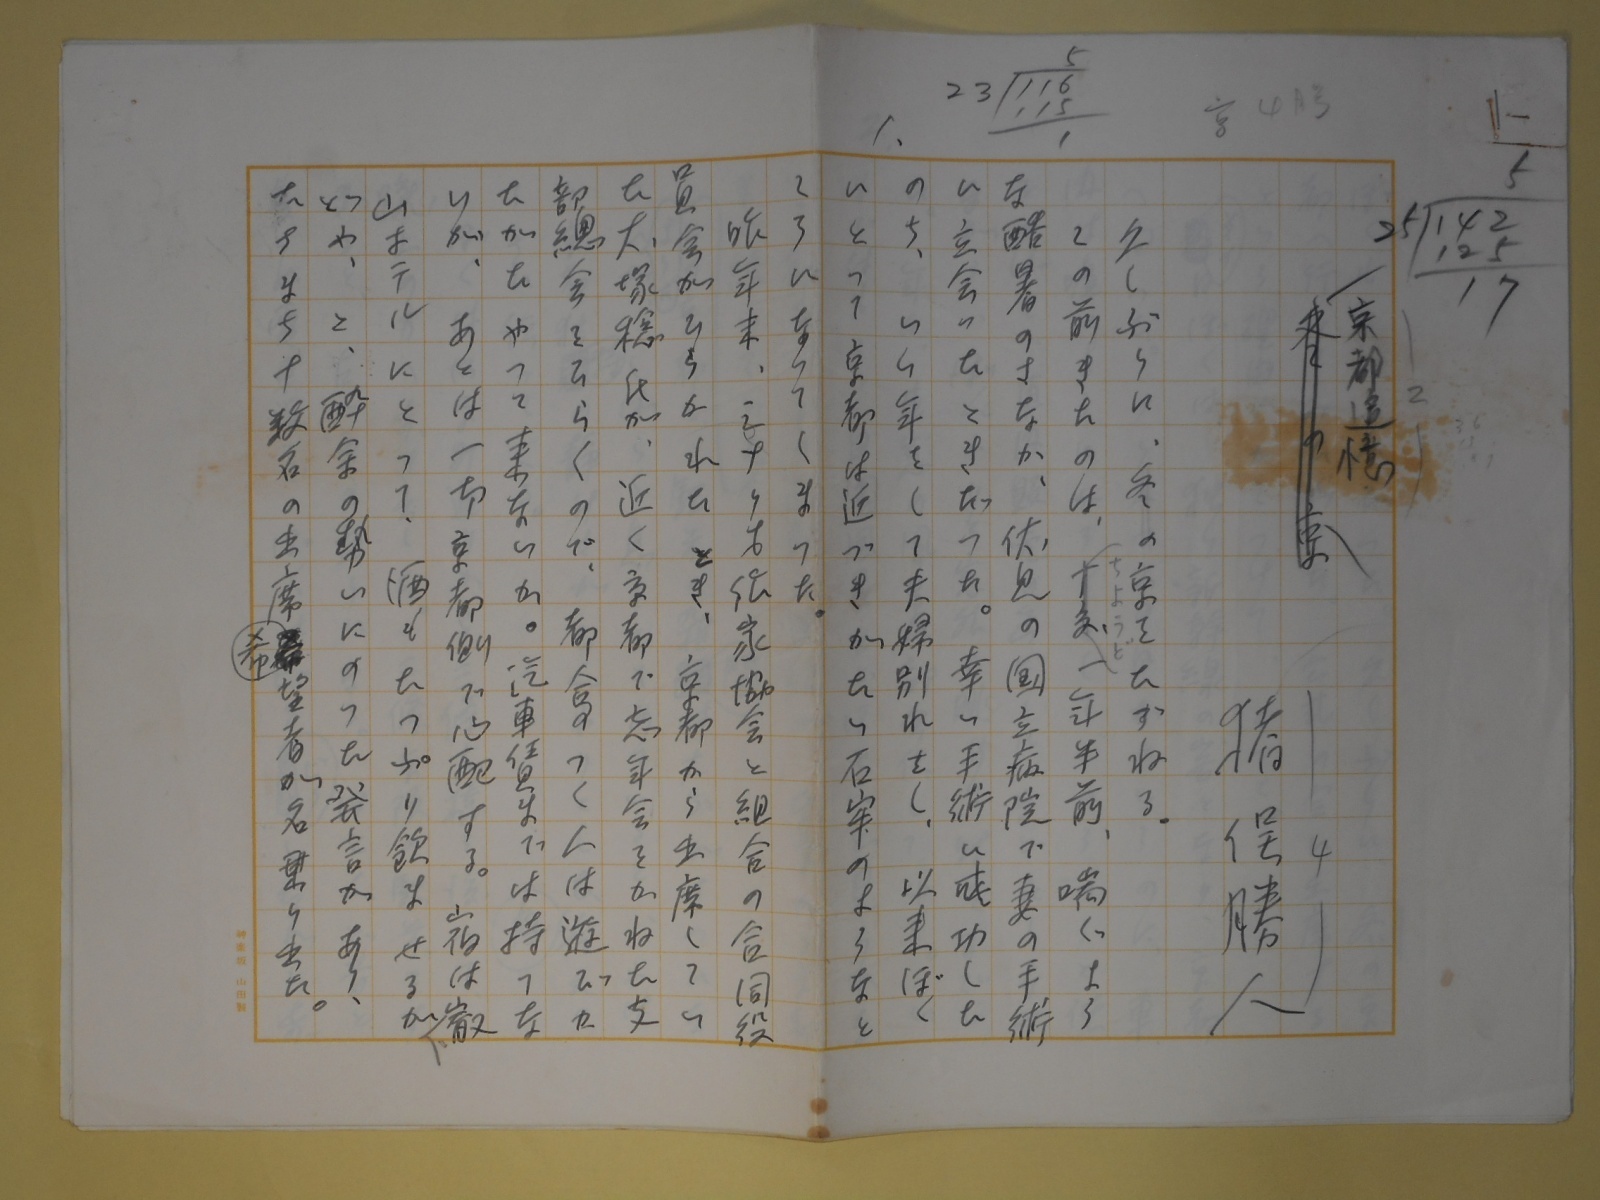 5
23)116
115
1
1.
京4月号
5
25)142
125
17
2
京都追憶
冬の京
4
猪俣勝人
久しぶりに、冬の京をたずねる。
この前きたのは、ちょうど一年半前、喘ぐよう
な酷暑のさなか、伏見の国立病院で妻の手術
に立会ったときだった。幸い手術に成功した
のち、いく年をして夫婦別れをし、以来ぼく
にとって京都は近づきがたい石牢のようなと
ころになってしまった。
昨年末、シナリオ作家協会と組合の合同役
員会がひらかれたとき、京都から出席してい
た犬塚稔氏が、近く京都で忘年会をかねた支
部総会をひらくので、都合のつく人は遊びか
たがたやって来ないか。汽車賃までは持てな
いが、あとは一切京都側で心配する。宿は叡
山ホテルにとって、酒もたっぷり飲ませるが
どや、と、酔余の勢いにのった発言があり、
たちまち十数名の出席希望者が名乗り出た。
希
神楽坂 山田製